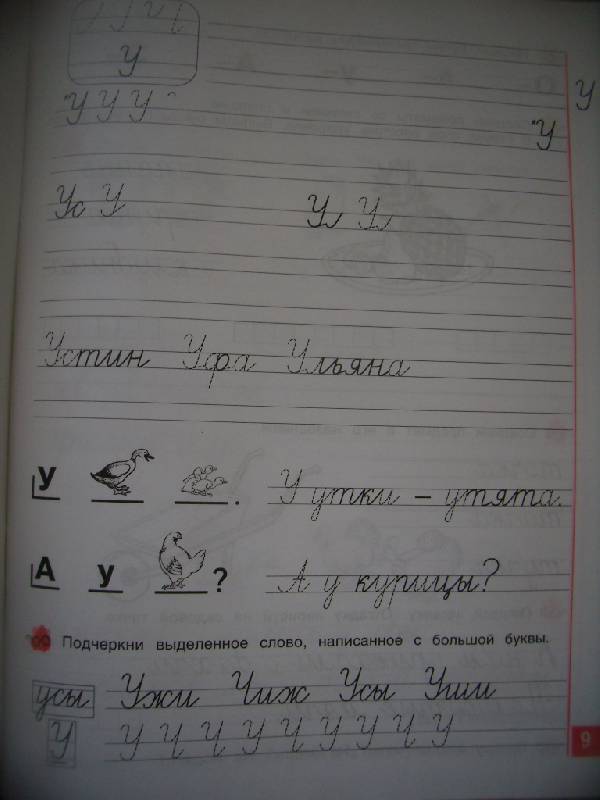 У
У
"У У У "
"У
Ус У Ул Ул
Устин Уфа Ульяна
У . У утки – утята.
А У ? А у курицы?
Подчеркни выделенное слово, написанное с большой буквы.
усы Ужи Чиж Усы Уши
У У Ч Ч У Ч У У Ч У
9